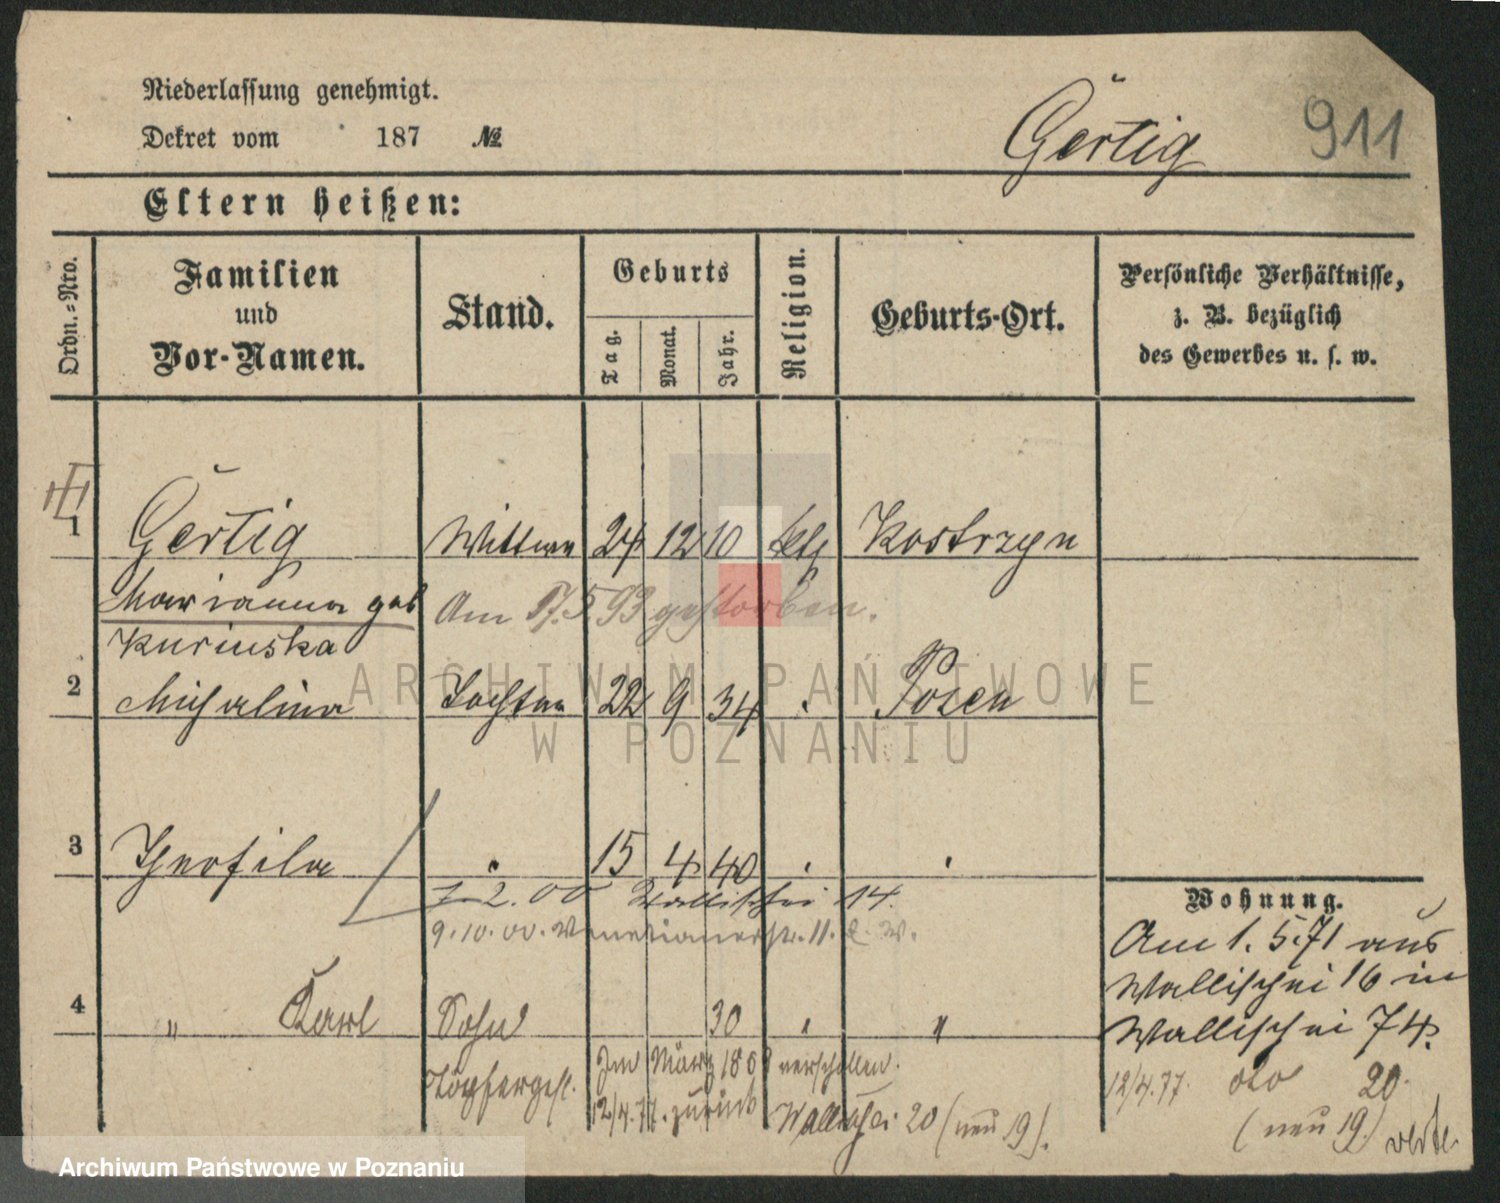 Niederlassung genehmigt.
Dekret vom 187 №
Gertig 911
Eltern heißen:
Ordn.=Nro.
Familien
und
Vor-Namen.
Stand.
Geburts
Tag.
Monat.
Jahr.
Religion.
Geburts-Ort.
Persönliche Verhältnisse,
z. B. bezüglich
des Gewerbes u. s. w.
1 Gertig Wittwe 24 12 10 kth Kostrzyn
Marianna geb
Am 17.5.93 gestorben.
Kurinska
2 Michalina Tochter 22 9 34 Posen
3 Theofila 15 4 40
2.00 Wallischei 14.
9.10.00. Venetianerstr. 11.
4 " Karl Sohn 30 "
Töpferges. Im März verschollen.
12/4.77. zurück Wallischei 20 (neu 19).
Wohnung.
Am 1. 5.71 aus
Wallischei 16 in
Wallischei 74.
12/4.77. dto 20.
(neu 19)
ARCHIWUM PAŃSTWOWE
W POZNANIU
Archiwum Państwowe w Poznaniu